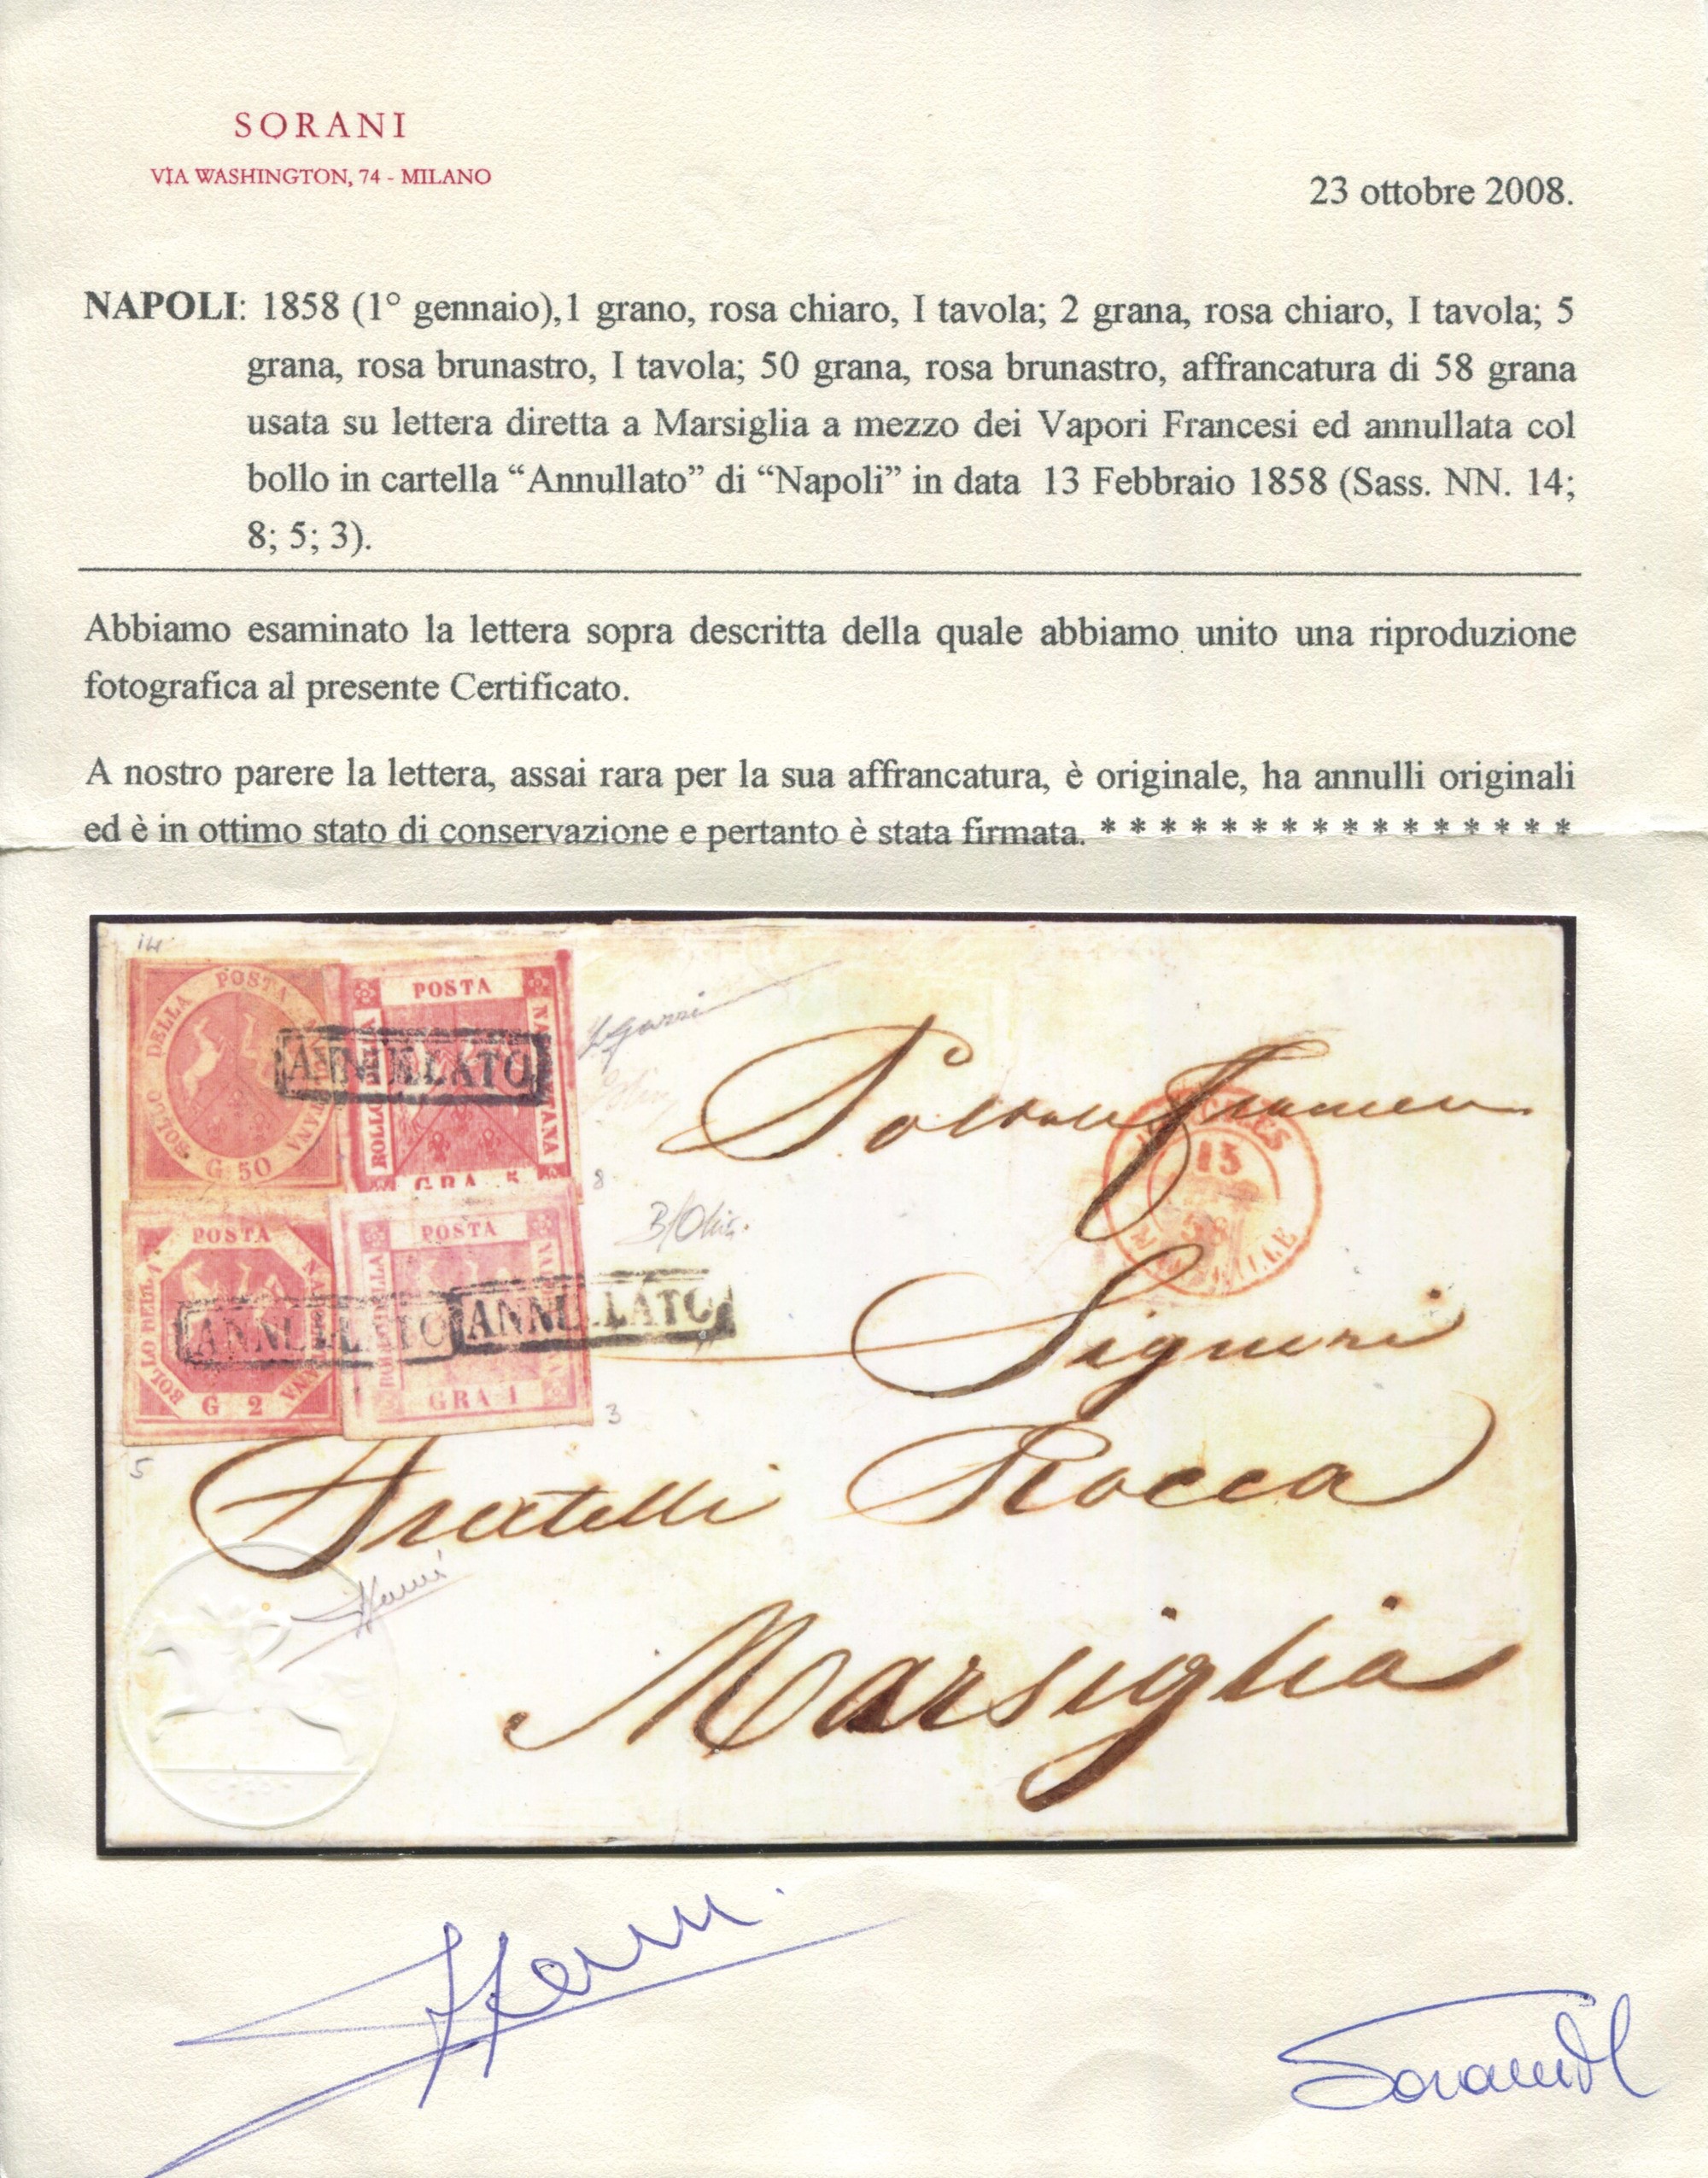 SORANI
VIA WASHINGTON, 74 - MILANO
23 ottobre 2008.
NAPOLI: 1858 (1° gennaio),1 grano, rosa chiaro, I tavola; 2 grana, rosa chiaro, I tavola; 5
grana, rosa brunastro, I tavola; 50 grana, rosa brunastro, affrancatura di 58 grana
usata su lettera diretta a Marsiglia a mezzo dei Vapori Francesi ed annullata col
bollo in cartella “Annullato” di “Napoli” in data 13 Febbraio 1858 (Sass. NN. 14;
8; 5; 3).
Abbiamo esaminato la lettera sopra descritta della quale abbiamo unito una riproduzione
fotografica al presente Certificato.
A nostro parere la lettera, assai rara per la sua affrancatura, è originale, ha annulli originali
ed è in ottimo stato di conservazione e pertanto è stata firmata. * * * * * * * * * * * * * * * *
14
BOLLO DELLA POSTA NAPOLETANA
G. 50
POSTA
BOLLO DELLA
NAPOLETANA
GRA 5
ANNULLATO
8
15
MARSEILLE
POSTA
BOLLO DELLA
G 2
POSTA
GRA 1
ANNULLATO
ANNULLATO
Signori
3
5
Fratelli Rocca
Marsiglia